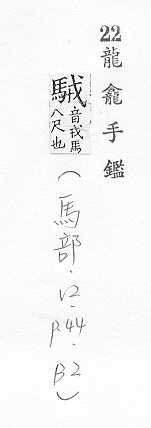 22龍龕手鑑
駥音戎馬
八尺也
(馬部.V2.P44.B2)